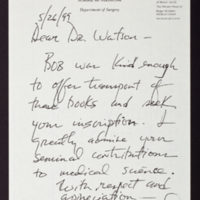 Department of Surgery
5/26/99
Dear Dr. Watson -
Bob was kind enough
to offer transport of
these books and seek
your inscription. I
greatly admire your
seminal contributions
to medical science.
With respect and
appreciation -